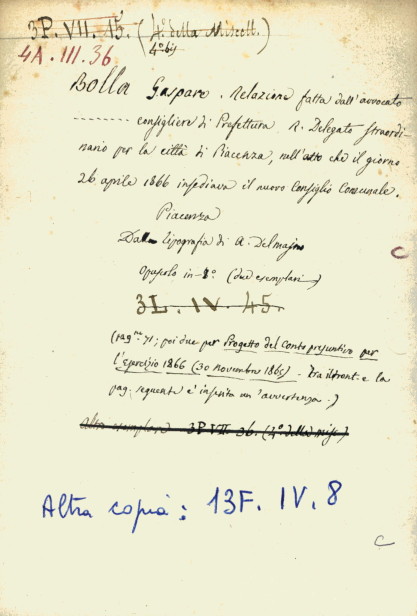 3P. VII. 15 (4°. della Miscell.)
4° bis
4A. III. 36
Bolla Gaspare. Relazione fatta dall'avvocato
consigliere di Prefettura R. Delegato straordi-
nario per la città di Piacenza, nell'atto che il giorno
26 aprile 1866 insediava il nuovo Consiglio Comunale.
Piacenza
Dalla Tipografia di A. Delmajno
Opuscolo in-8° (due esemplari)
3L. IV. 45.
(pag.ne 71; poi due per Progetto del Conto presuntivo per
l'Esercizio 1866 (30 novembre 1865) - Tra il front. e la
pag. seguente è inserita un'avvertenza.)
Altro esemplare 3P. VII. 36. (4° della misc.)
Altra copia: 13F. IV. 8
C